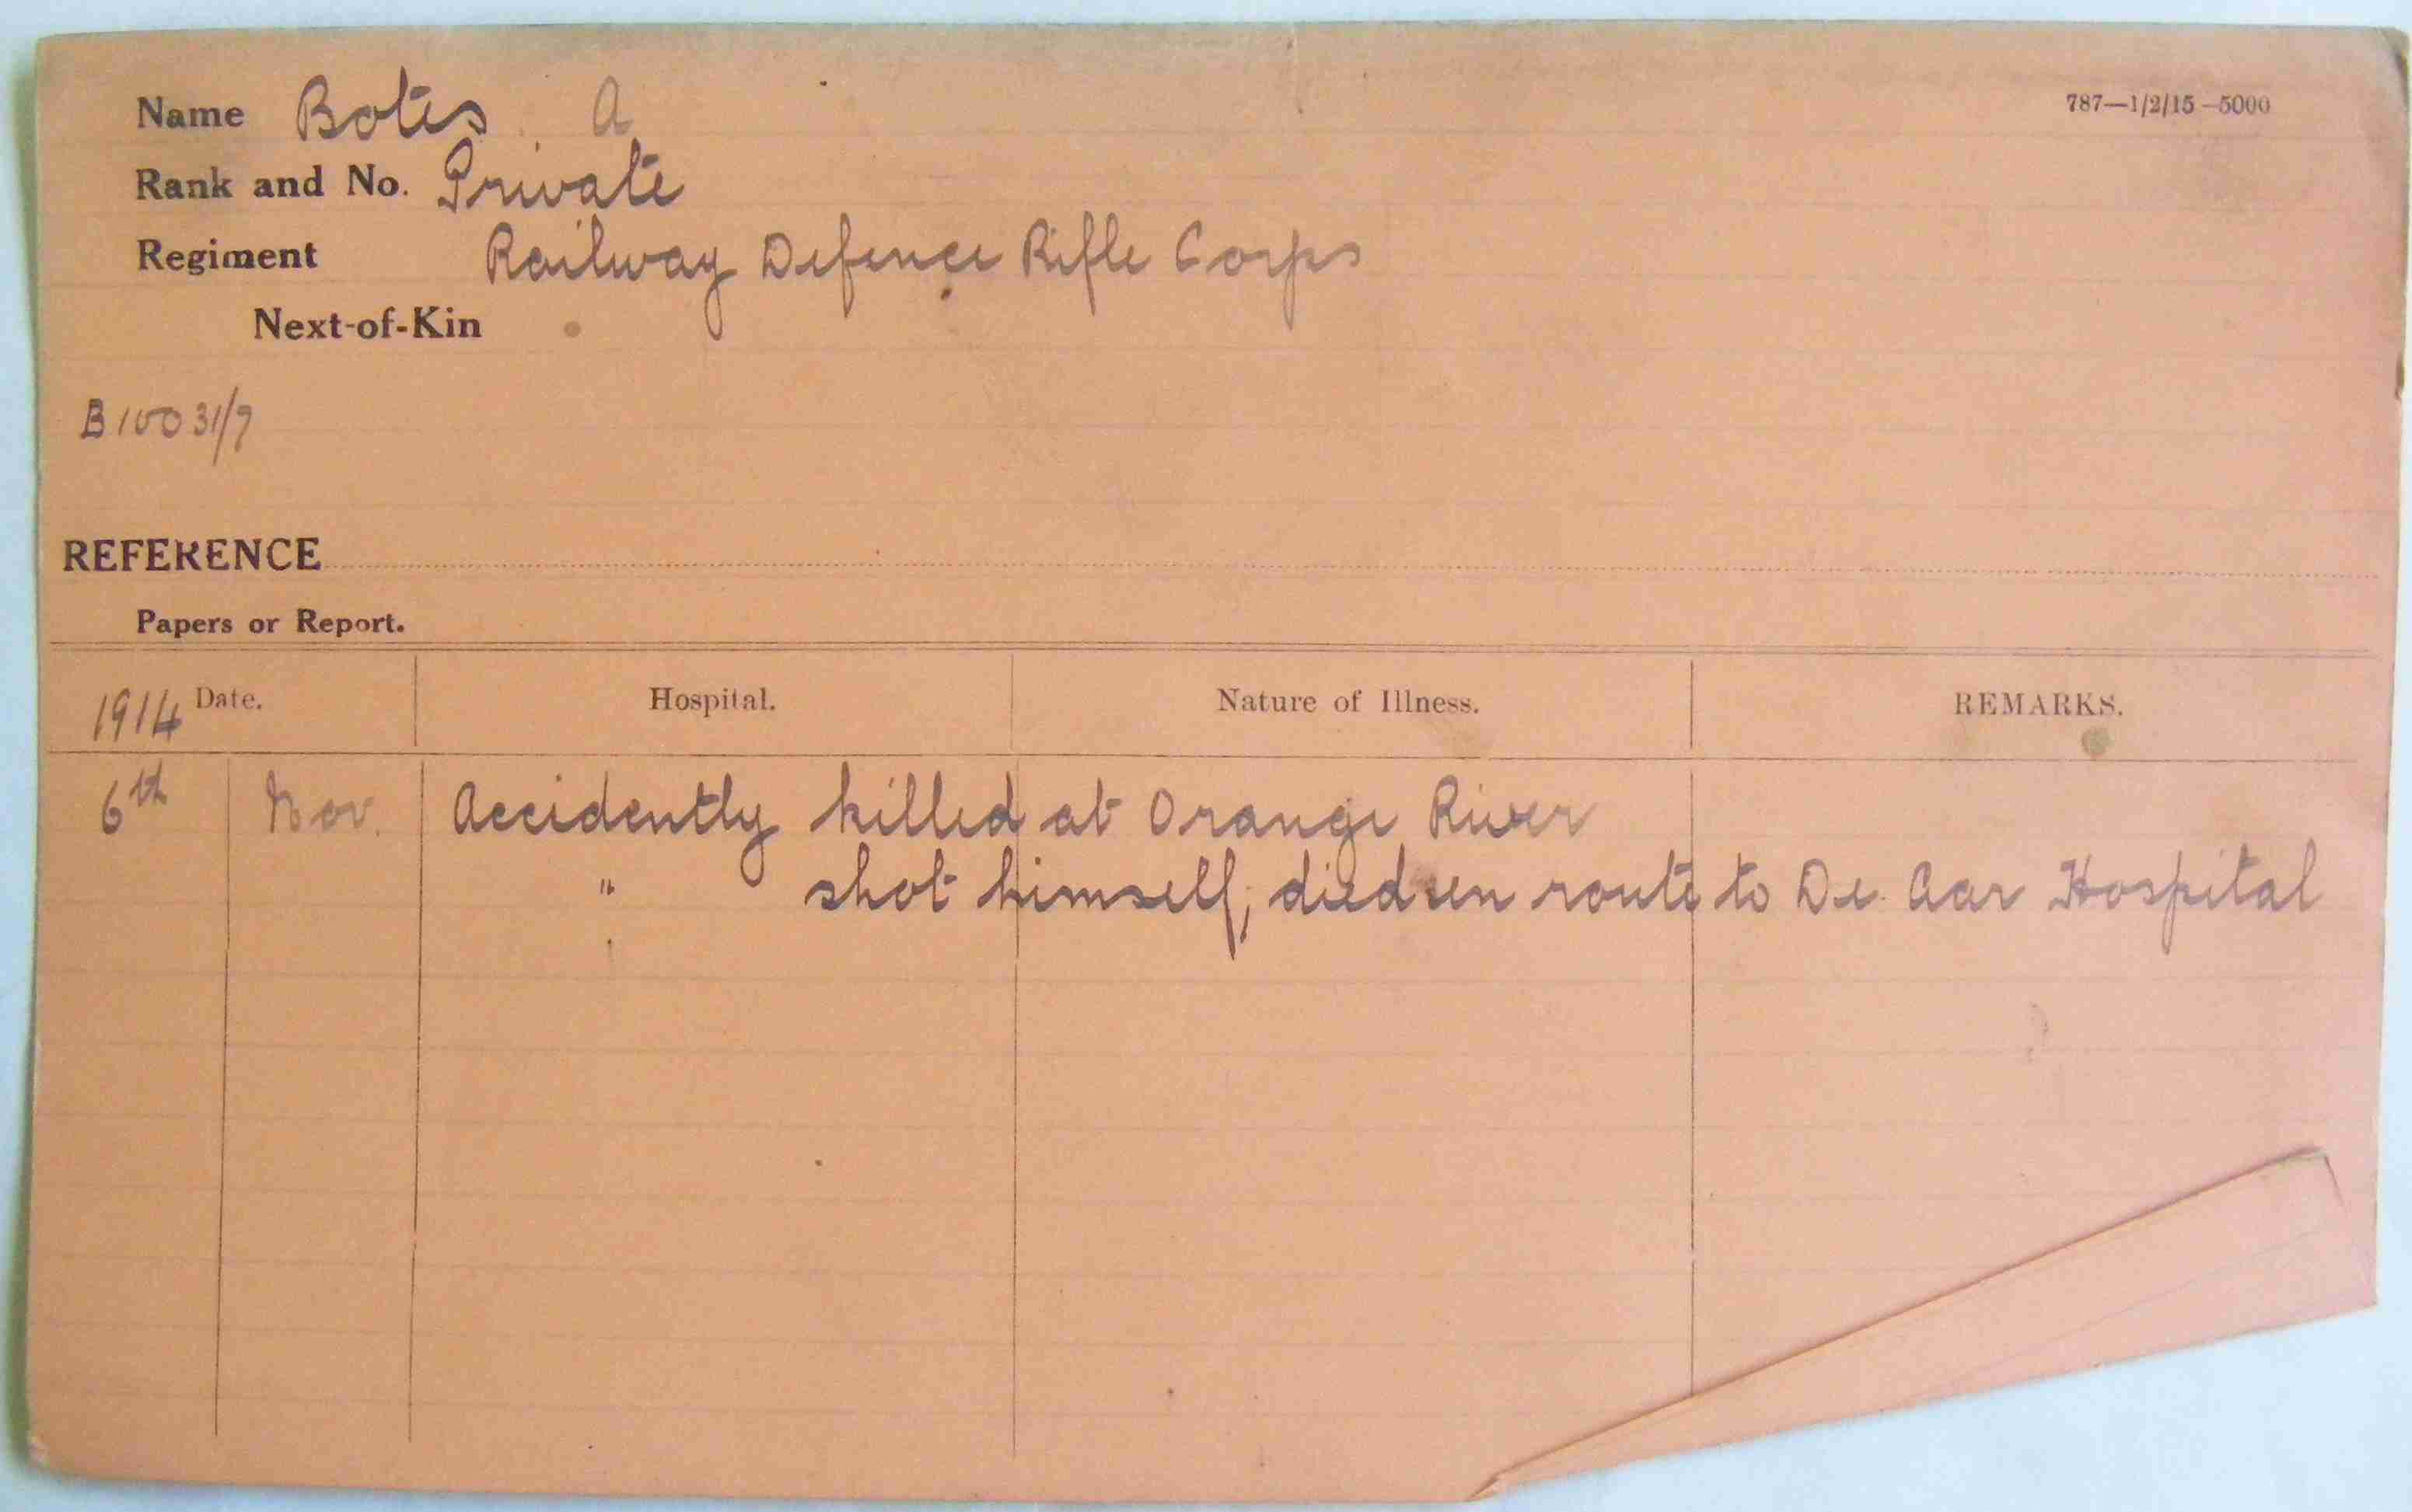 787—1/2/15—5000
Name Botes A
Rank and No. Private
Regiment Railway Defence Rifle Corps
Next-of-Kin
B10031/7
REFERENCE
Papers or Report.
1914 Date. Hospital. Nature of Illness. REMARKS.
6th Nov. Accidently killed at Orange River
" shot himself, died en route to De Aar Hospital